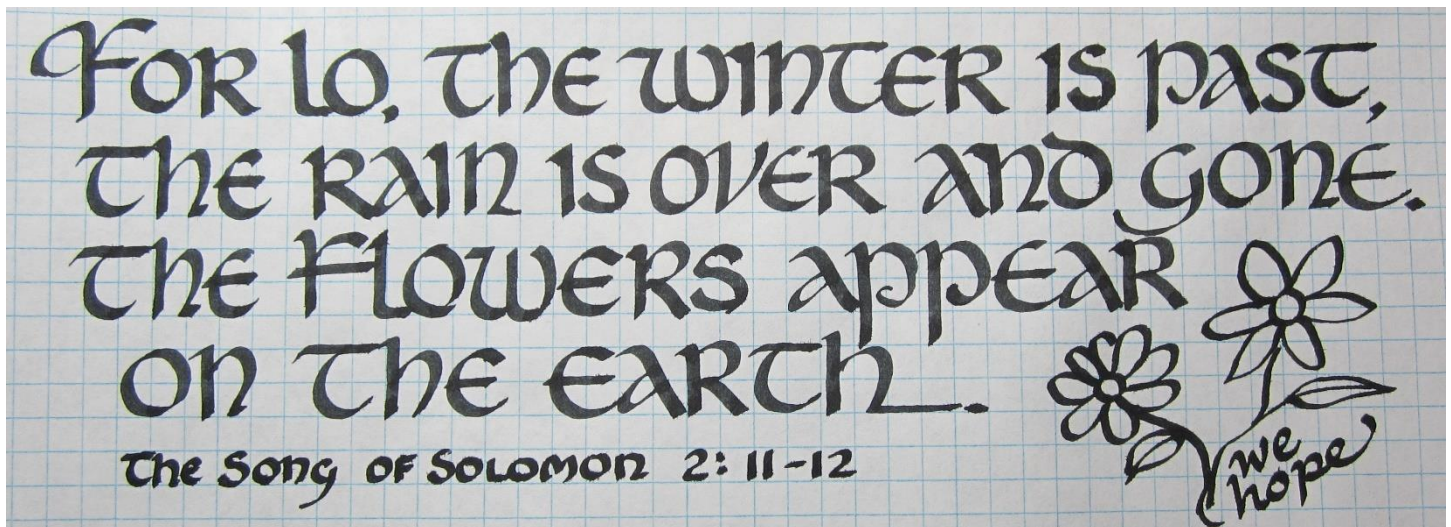 For lo, the winter is past,
the rain is over and gone.
The flowers appear
on the earth.
The Song of Solomon 2:11-12
we
hope